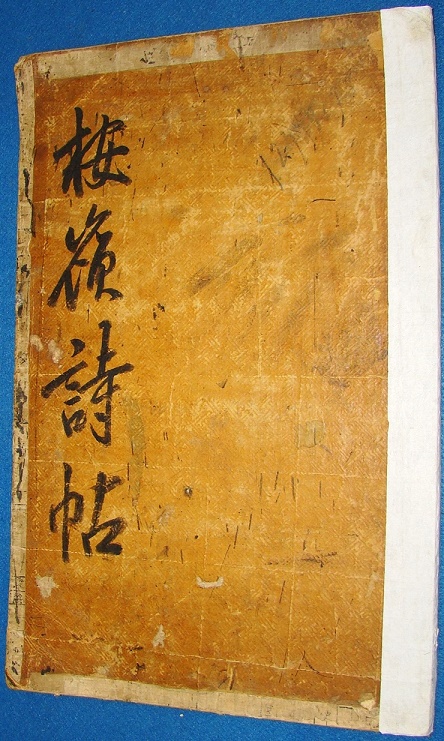 梅嶺詩帖